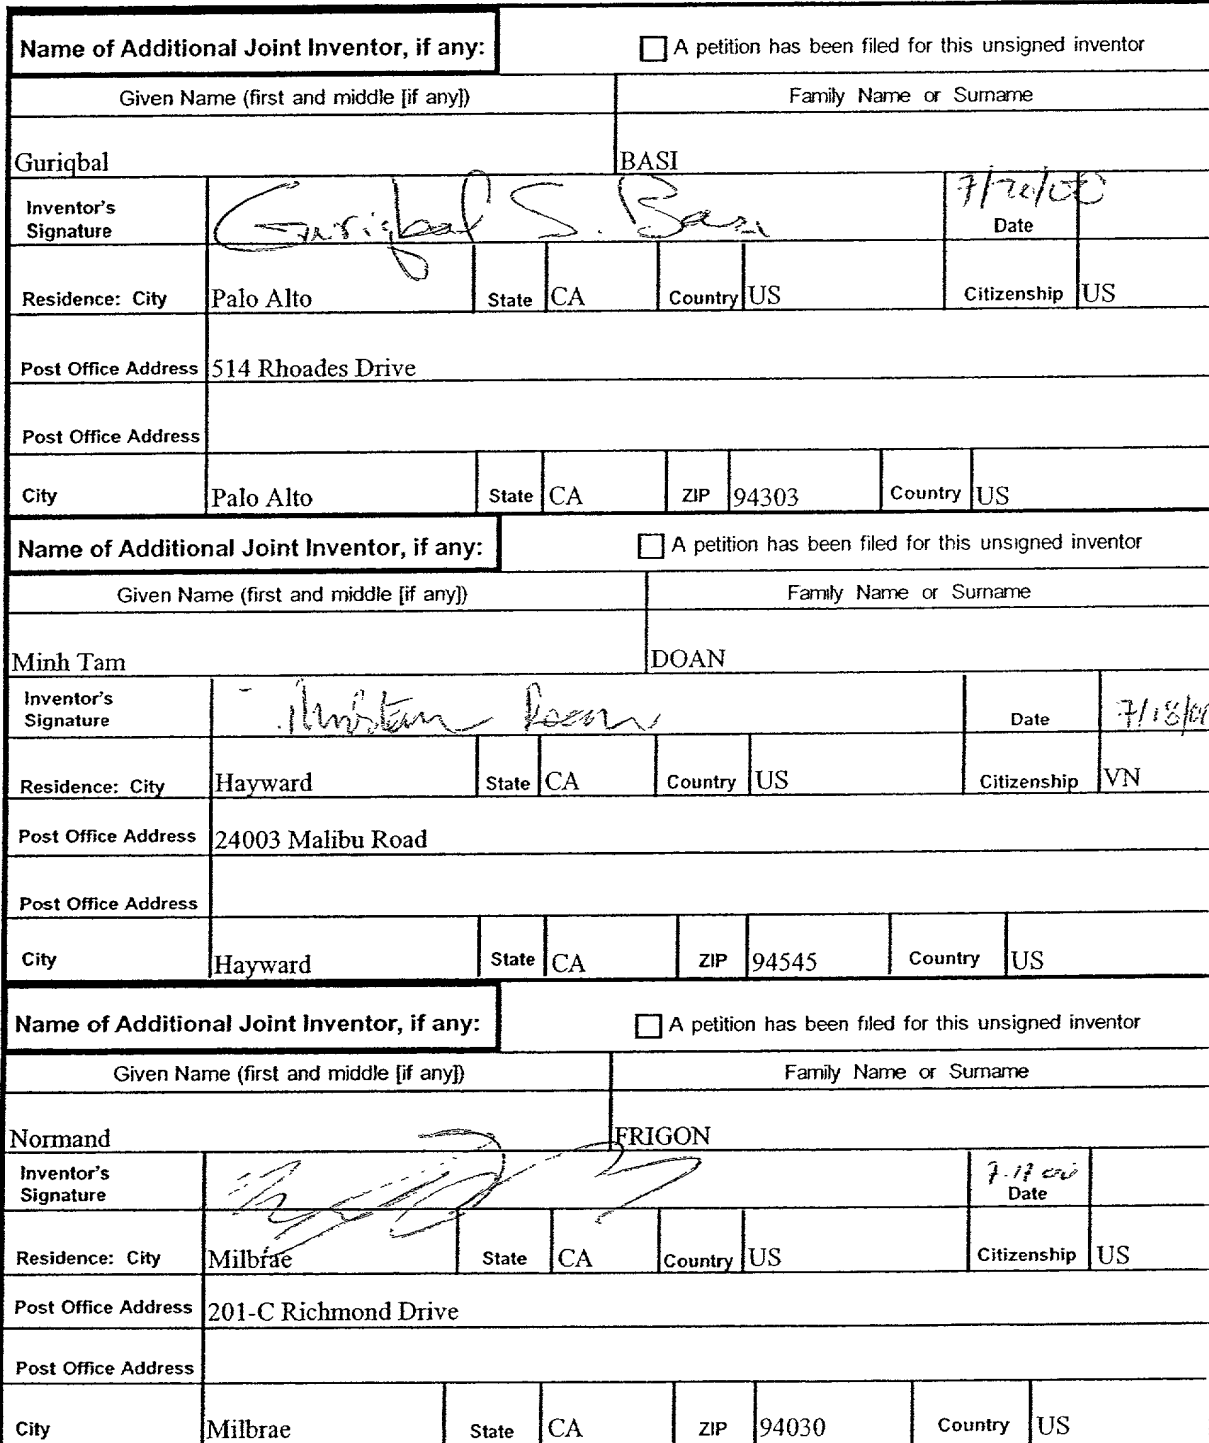 Name of Additional Joint Inventor, if any: A petition has been filed for this unsigned inventor
Given Name (first and middle [if any]) Family Name or Surname
Guriqbal BASI
Inventor's Signature Guriqbal S. Basi 7/20/00 Date
Residence: City Palo Alto State CA Country US Citizenship US
Post Office Address 514 Rhoades Drive
Post Office Address
City Palo Alto State CA ZIP 94303 Country US
Name of Additional Joint Inventor, if any: A petition has been filed for this unsigned inventor
Given Name (first and middle [if any]) Family Name or Surname
Minh Tam DOAN
Inventor's Signature Doan Date 7/18/00
Residence: City Hayward State CA Country US Citizenship VN
Post Office Address 24003 Malibu Road
Post Office Address
City Hayward State CA ZIP 94545 Country US
Name of Additional Joint Inventor, if any: A petition has been filed for this unsigned inventor
Given Name (first and middle [if any]) Family Name or Surname
Normand FRIGON
Inventor's Signature 7.17.00 Date
Residence: City Milbrae State CA Country US Citizenship US
Post Office Address 201-C Richmond Drive
Post Office Address
City Milbrae State CA ZIP 94030 Country US